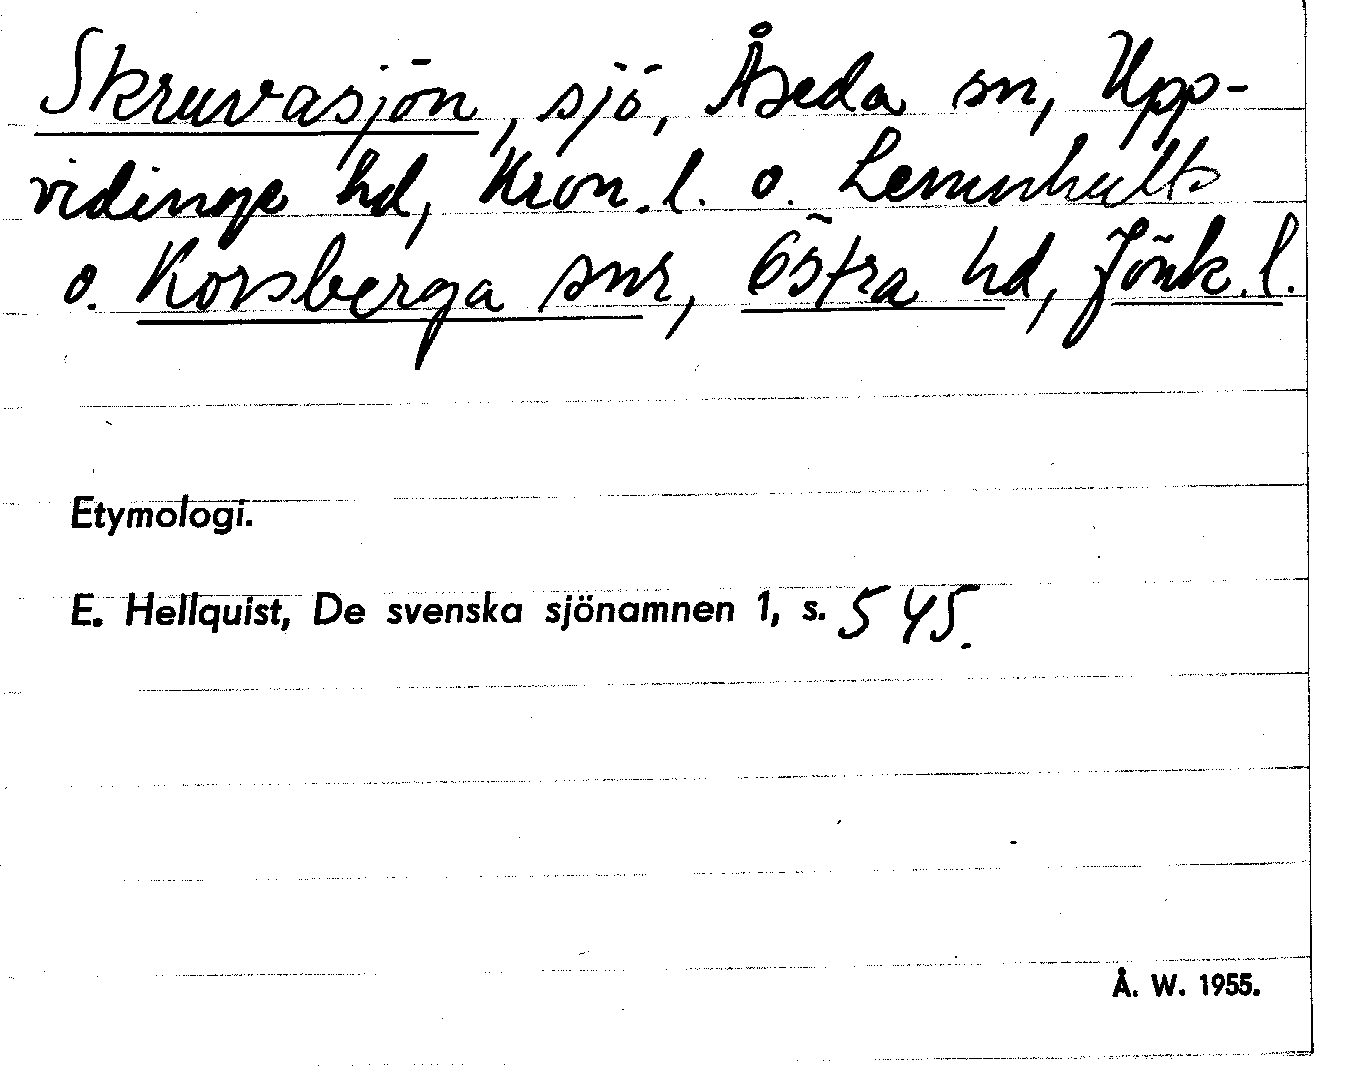 Skruvasjön, sjö, Åseda sn, Upp-
vidinge hd, Kron.l. o. Lemnhults
o. Korsberga snr, Östra hd, Jönk.l.
Etymologi.
E. Hellquist, De svenska sjönamnen 1, s. 545.
Å. W. 1955.